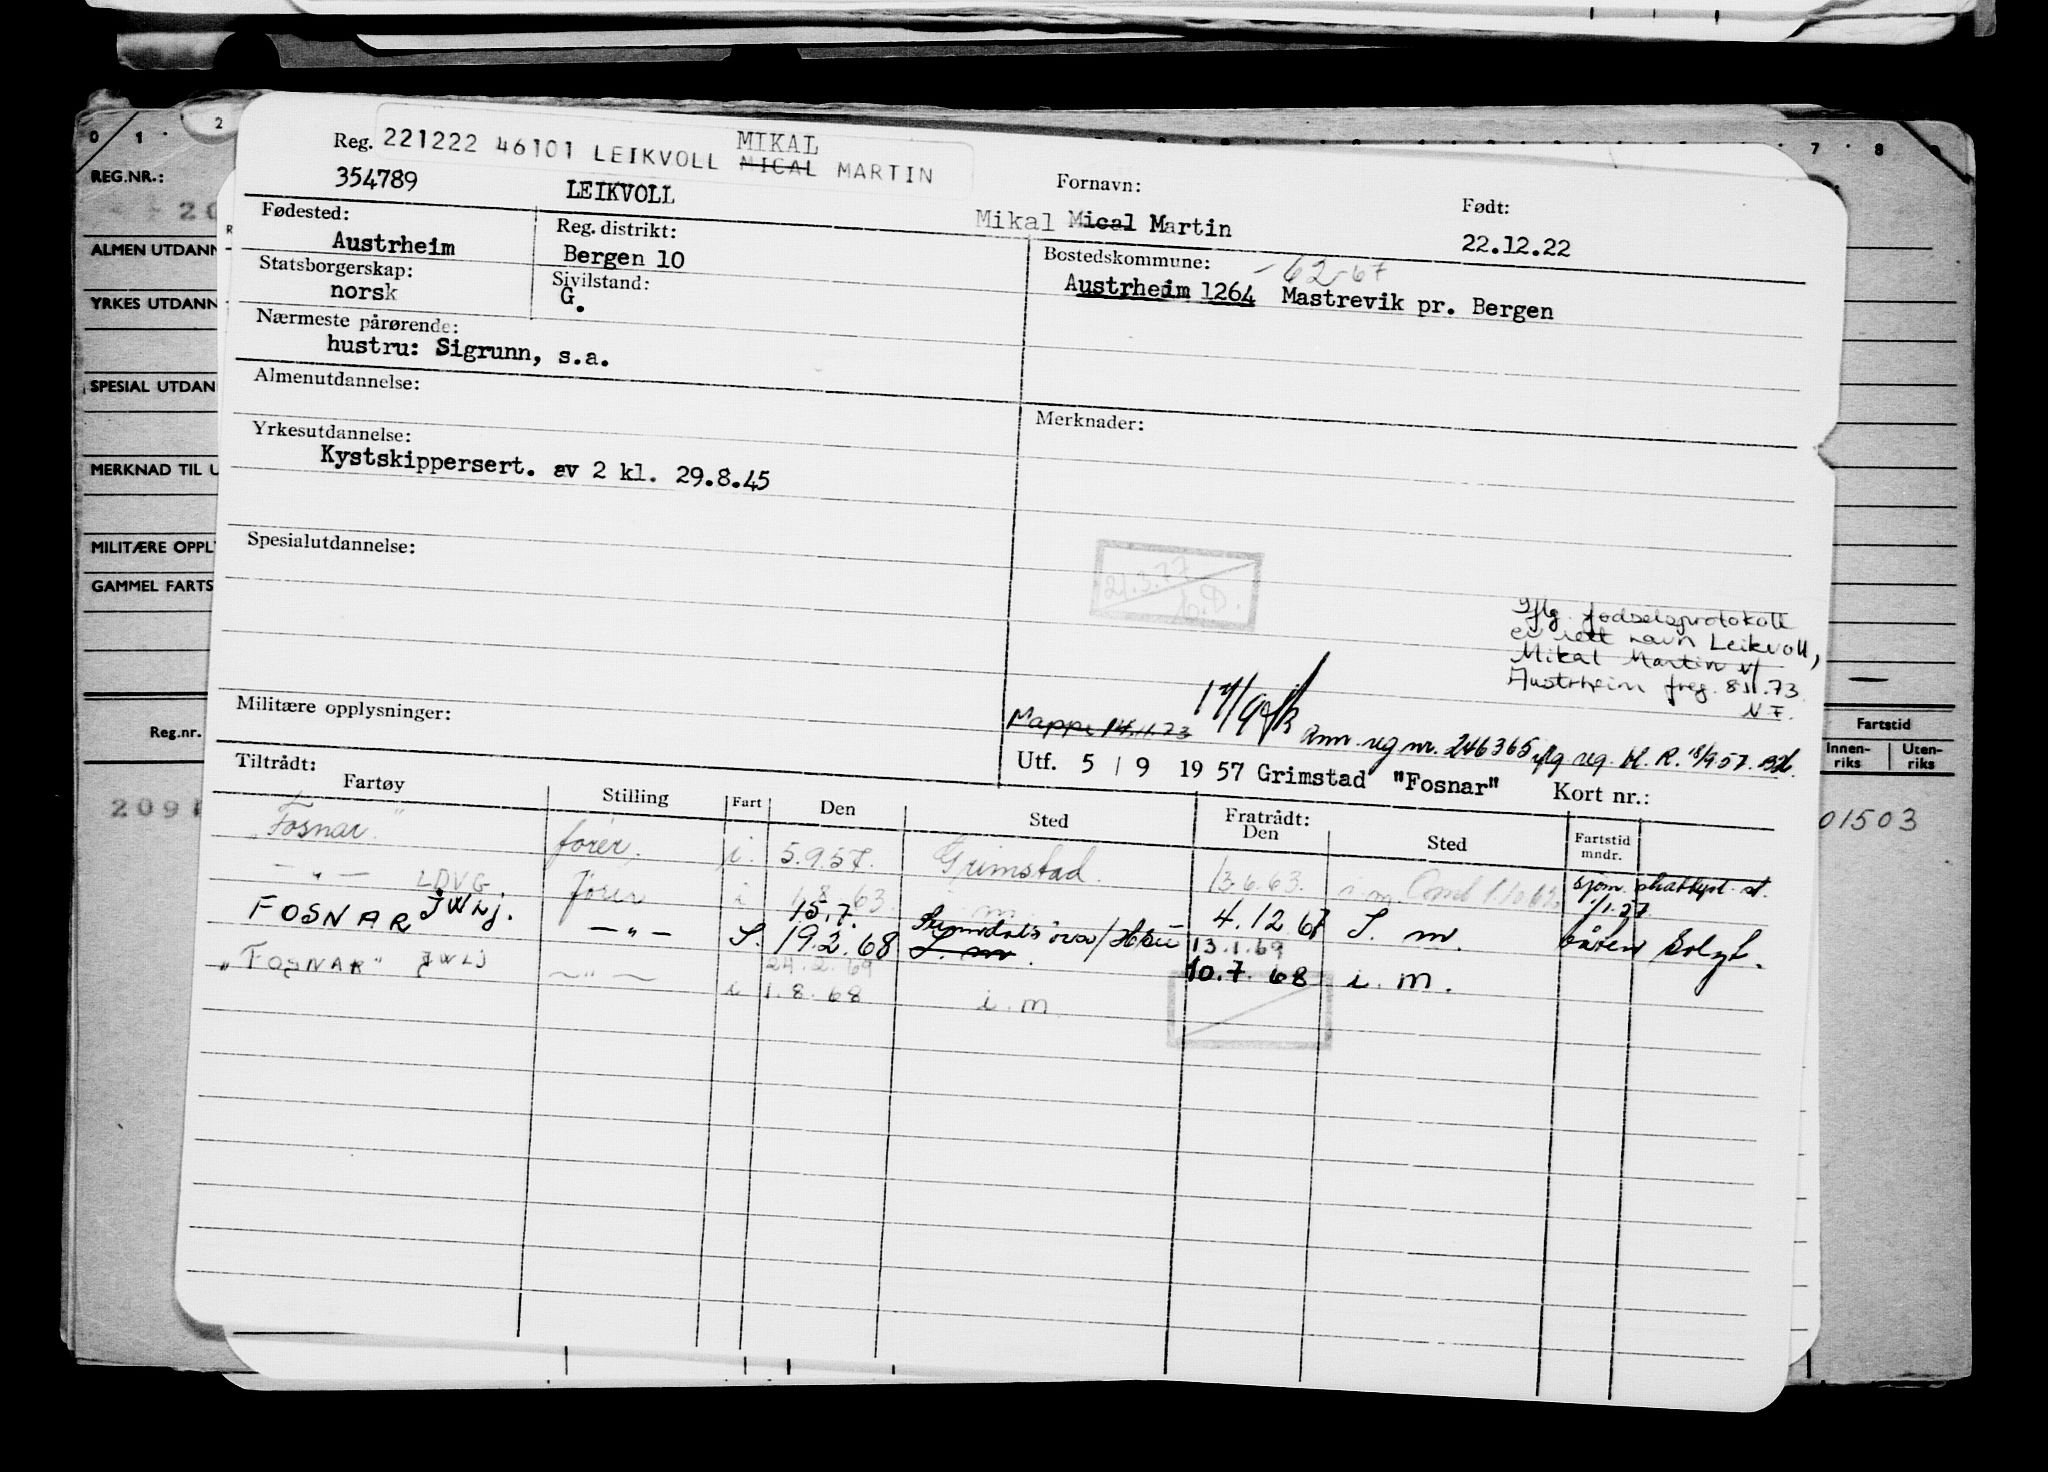 0 1 2
7 8
REG.NR.:
ALMEN UTDANN
YRKES UTDANN
SPESIAL UTDAN
MERKNAD TIL U
MILITÆRE OPPL
GAMMEL FARTS
Reg.nr.
2091
Fartstid
Innen-riks Uten-riks
01503
MIKAL
Reg. 221222 46101 LEIKVOLL MICAL MARTIN
354789 LEIKVOLL
Fornavn: Født:
Mikal Mical Martin 22.12.22
Fødested: Reg. distrikt: Bostedskommune: - 62-67
Austrheim Bergen 10 Austrheim 1264 Mastrevik pr. Bergen
Statsborgerskap: Sivilstand:
norsk G.
Nærmeste pårørende:
hustru: Sigrunn, s.a.
Almenutdannelse: Merknader:
Yrkesutdannelse:
Kystskippersert. av 2 kl. 29.8.45
Spesialutdannelse:
21.3.77
Iflg. fødselsprotokoll
er rett navn Leikvoll,
Mikal Martin v/
Austrheim freg. 8.11.73
N F.
Militære opplysninger:
Mappe 14.11.73
Ann. reg nr. 246365 iflg reg. M. R. 18/9 57.
Utf. 5 / 9 19 57 Grimstad "Fosnar" Kort nr.:
Tiltrådt: Fratrådt:
Fartøy Stilling Fart Den Sted Den Sted Fartstid mndr.
"Fosnar" fører, i. 5.9.57. Grimstad. 13.6.63.
— " — LDVG. fører i 1.8.63 i m
FOSNAR JWLJ. — " — 15.7. 4.12 67 I. m.
S. 19.2.68 I. m. 13.1.69 båten solgt.
"FOSNAR" JWLJ — " — 24.2.69 10.7.68 i. m.
i 1.8.68 i. m